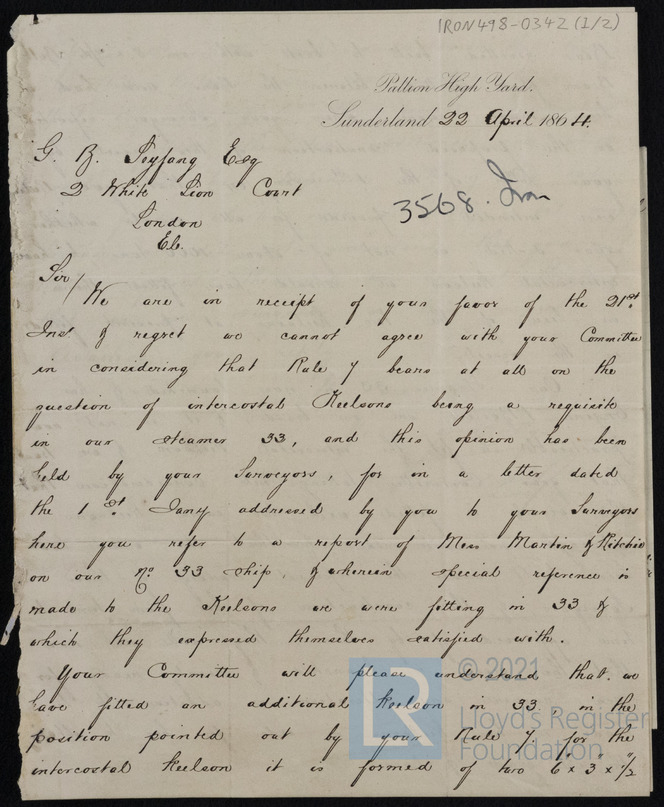 IRON498-0342 (1/2)
Pallion High Yard.
Sunderland 22 April 1864.
G. B. Seyfang Esq
2 White Lion Court
London
EC.
3568 Iron
Sir/
We are in receipt of your favor of the 21st
Inst & regret we cannot agree with your Committee
in considering that Rule 7 bears at all on the
question of intercostal Keelsons being a requisite
in our steamer 33, and this opinion has been
held by your Surveyors, for in a letter dated
the 1st Jany addressed by you to your Surveyors
here you refer to a report of Mess Martin & Ritchie
on our No 33 ship, & wherein special reference is
made to the Keelsons we were fitting in 33 &
which they expressed themselves satisfied with.
Your Committee will please understand that we
have fitted an additional keelson in 33. in the
position pointed out by your Rule 7. for the
intercostal keelson it is formed of two 6 x 3 x "/2
LR
© 2021
Lloyd's Register
Foundation